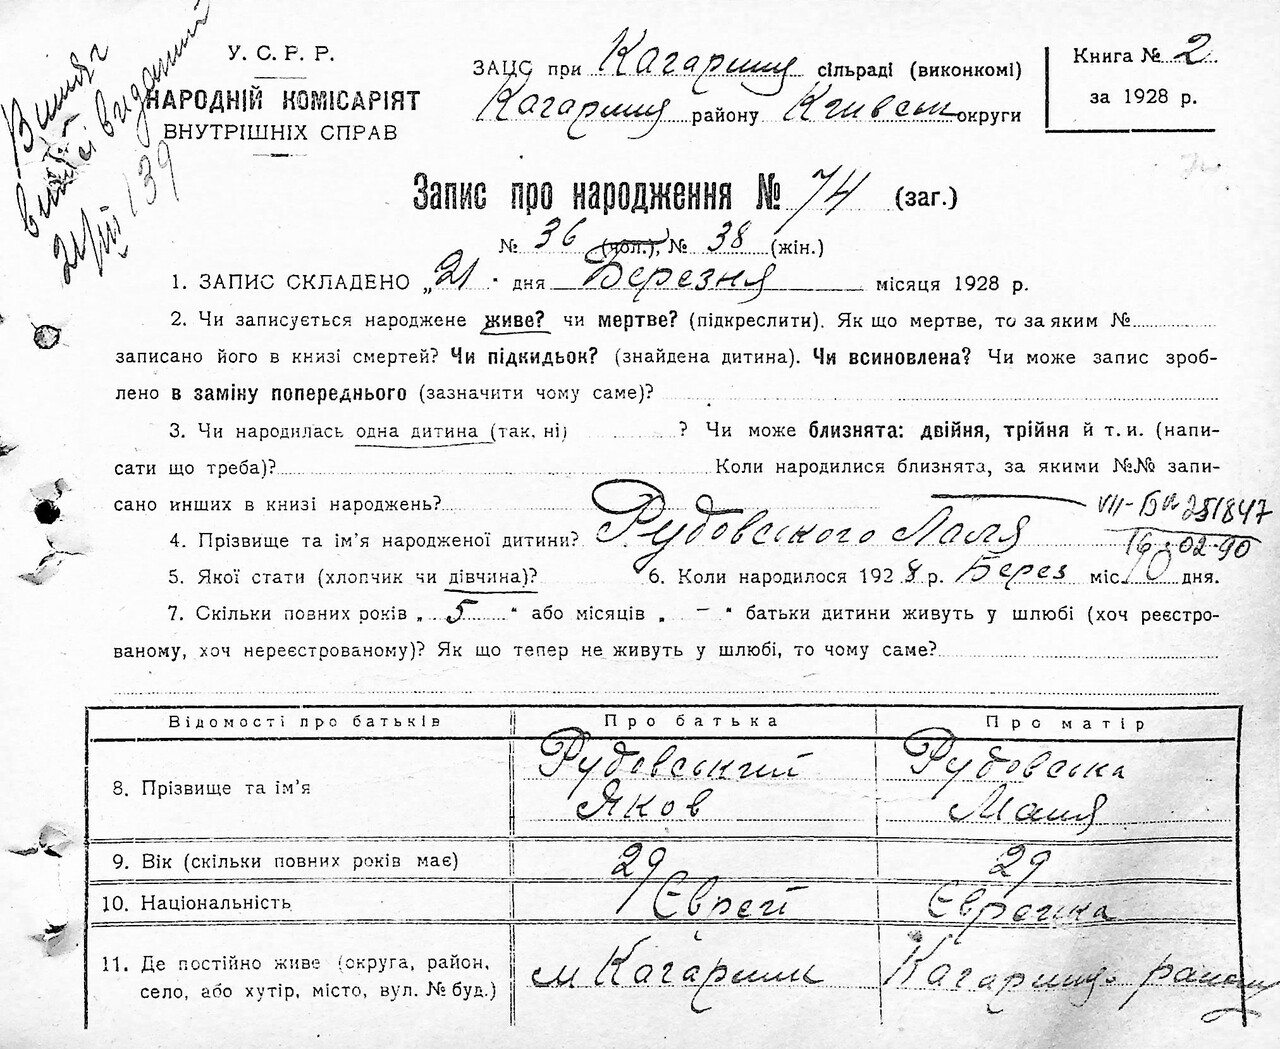 У. С. Р. Р.
НАРОДНІЙ КОМІСАРІЯТ
ВНУТРІШНІХ СПРАВ
ЗАЦС при Кагарлиц сільраді (виконкомі)
Кагарлиц району Київськ округи
Книга № 2
за 1928 р.
139
Запис про народження № 74 (заг.)
№ 36 (чол.), № 38 (жін.)
1. ЗАПИС СКЛАДЕНО „21" дня Березня місяця 1928 р.
2. Чи записується народжене живе? чи мертве? (підкреслити). Як що мертве, то за яким №
записано його в книзі смертей? Чи підкидьок? (знайдена дитина). Чи всиновлена? Чи може запис зроб-
лено в заміну попереднього (зазначити чому саме)?
3. Чи народилась одна дитина (так, ні) ? Чи може близнята: двійня, трійня й т. и. (напи-
сати що треба)? Коли народилися близнята, за якими №№ запи-
сано инших в книзі народжень?
VII-БК 251847
4. Прізвище та ім'я народженої дитини? Рудовського
16-02-90
5. Якої стати (хлопчик чи дівчина)? 6. Коли народилося 1928 р. Берез міс. 10 дня.
7. Скільки повних років „ 5 " або місяців „ – " батьки дитини живуть у шлюбі (хоч реєстро-
ваному, хоч нереєстрованому)? Як що тепер не живуть у шлюбі, то чому саме?
Відомості про батьків Про батька Про матір
8. Прізвище та ім'я Рудовський Яков Рудовська Маня
9. Вік (скільки повних років має) 29 29
10. Національність Єврей Єврейка
11. Де постійно живе (округа, район, м Кагарлик Кагарлиц. району
село, або хутір, місто, вул. № буд.)